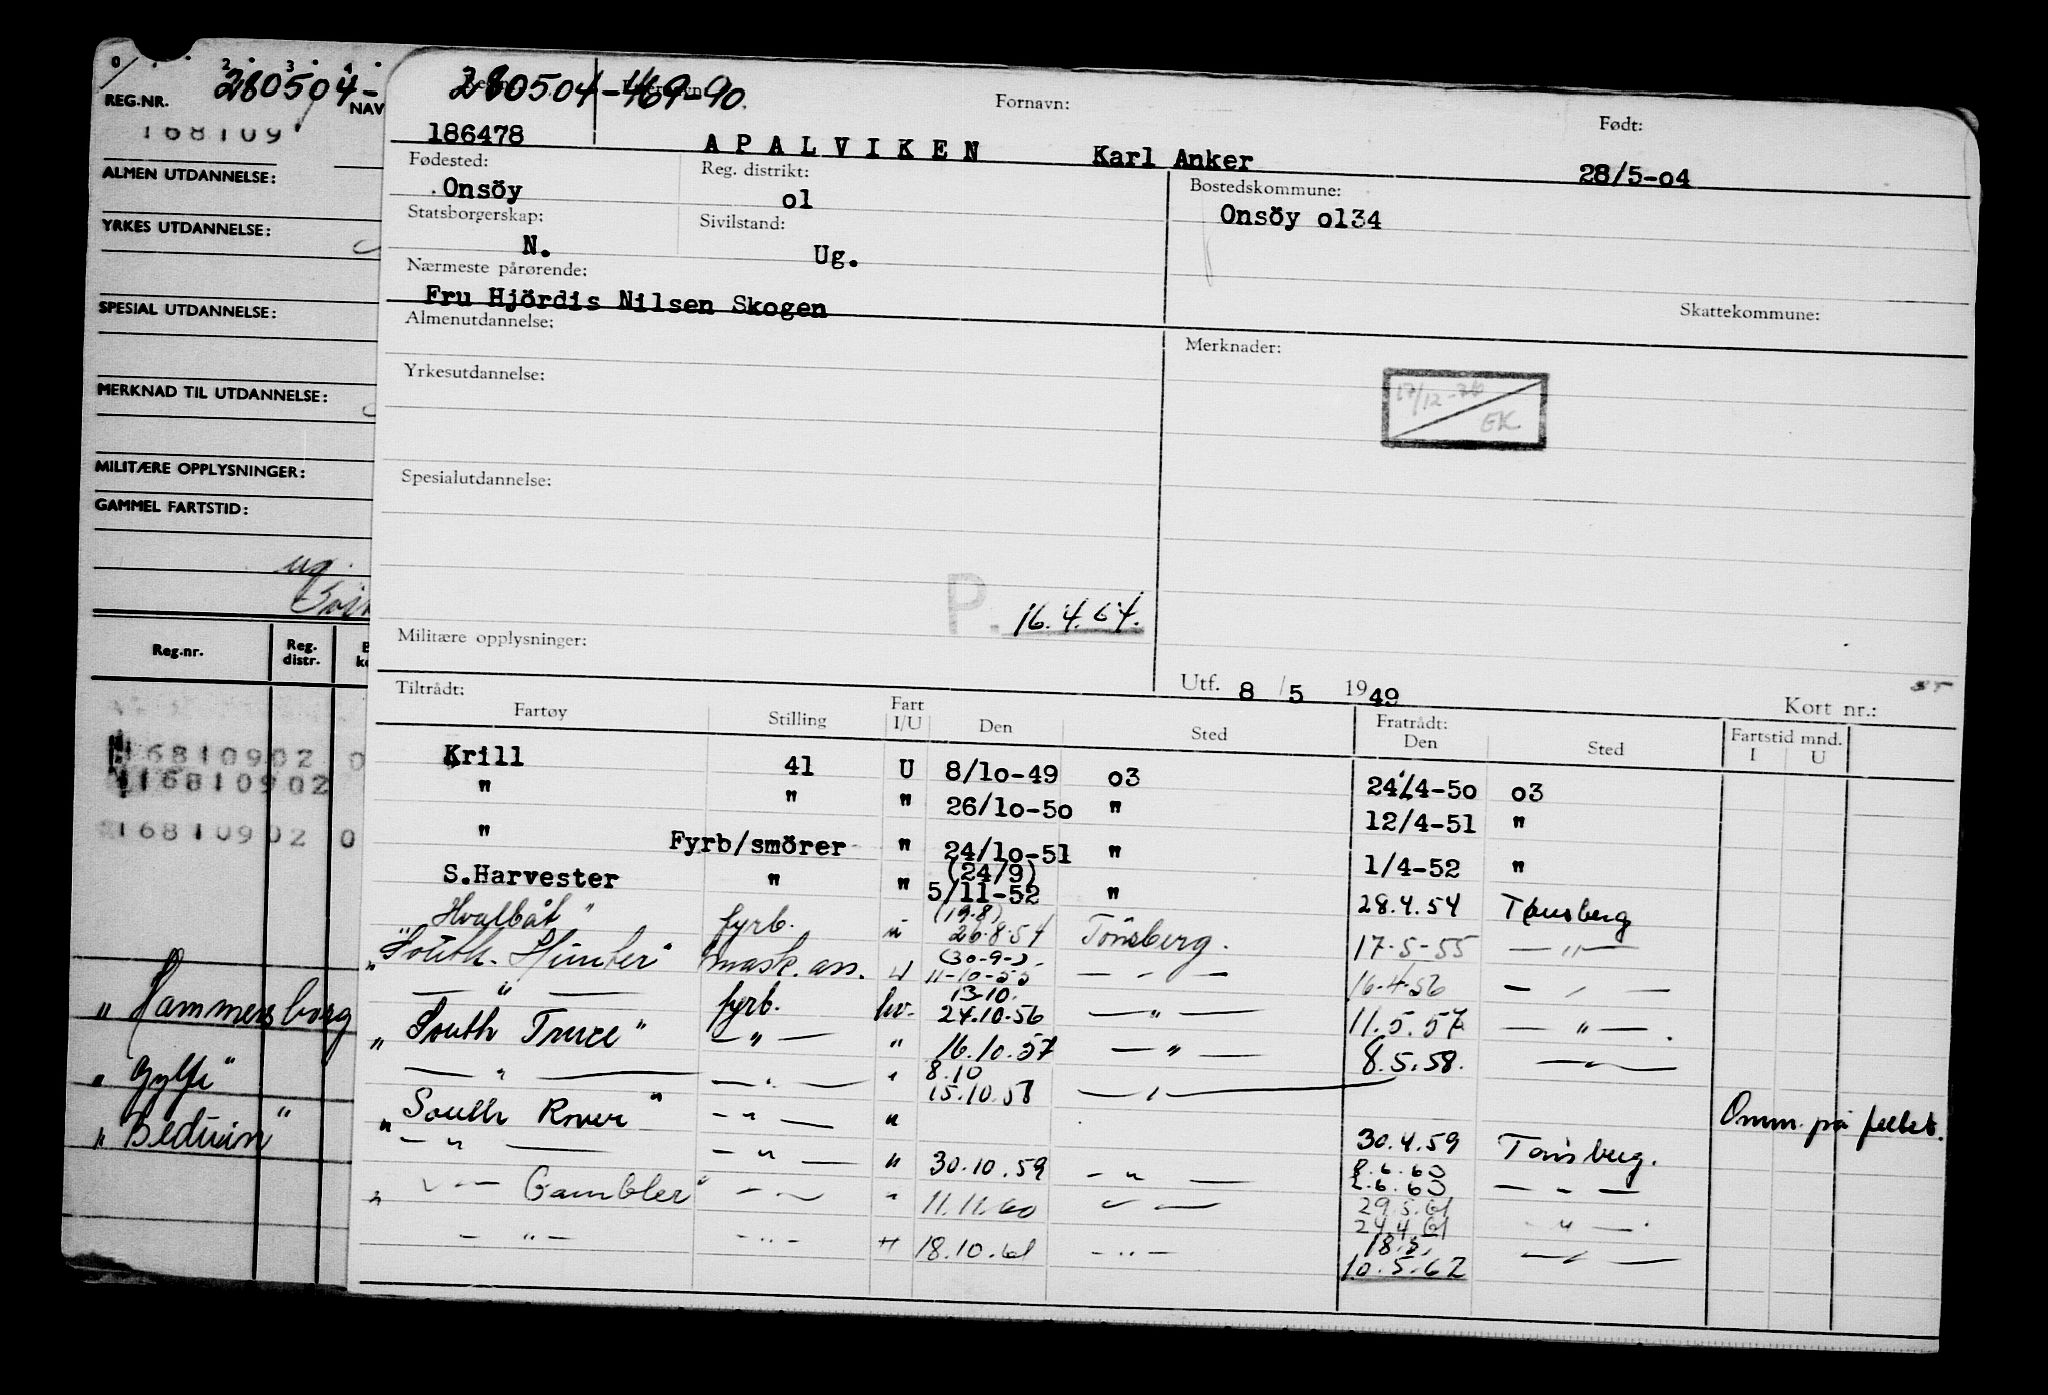 0 2 3 4
REG.NR. 280504- NAV
168109
ALMEN UTDANNELSE:
YRKES UTDANNELSE:
SPESIAL UTDANNELSE:
MERKNAD TIL UTDANNELSE:
MILITÆRE OPPLYSNINGER:
GAMMEL FARTSTID:
ug.
Reg.nr. Reg. distr.
16810902 0
16810902
16810902 0
" Hammersborg
" Gylfe"
" Beduin"
280504-469-90. Fornavn: Født:
186478 APALVIKEN Karl Anker 28/5-o4
Fødested: Reg. distrikt: Bostedskommune:
Onsöy o1 Onsöy o134
Statsborgerskap: Sivilstand:
N. Ug.
Nærmeste pårørende:
Fru Hjördis Nilsen Skogen Skattekommune:
Almenutdannelse: Merknader:
17/12-70 EK
Yrkesutdannelse:
Spesialutdannelse:
P. 16.4.64.
Militære opplysninger:
Utf. 8/5 1949 Kort nr.:
Tiltrådt: Fratrådt: Fartstid mnd.
Fartøy Stilling Fart I/U Den Sted Den Sted I U
Krill 41 U 8/1o-49 o3 24/4-5o o3
" " " 26/1o-5o " 12/4-51 "
" Fyrb/smörer " 24/1o-51 " 1/4-52 "
S.Harvester " " (24/9) 5/11-52 " 28.4.54 Tønsberg
"Hvalbåt" fyrb. u (19.8) 26.8.54 Tönsberg. 17-5-55 — " —
"South. Hunter" mask.ass. u (30-9-) 11-10-55 — " — 16.4.56 — " —
— " — fyrb. hv. 13.10. 24.10.56 — " — 11.5.57 — " — .
" South Truce" — " — " 16.10.57 — " — 8.5.58. — " —
— " — — " — " 8.10 15.10.58 — " —
" South Rover" — " — " Omm. på feltet.
— " — — " — " 30.10.59 — " — 30.4.59 Tønsberg.
" — " — Gambler" — " — " 11.11.60 — " — 8.6.60 2.6.60 — " —
29.5.61 24.4.61 — " —
— " — — " — " 18.10.61 — " — 18.5. 10.5.62 — " —